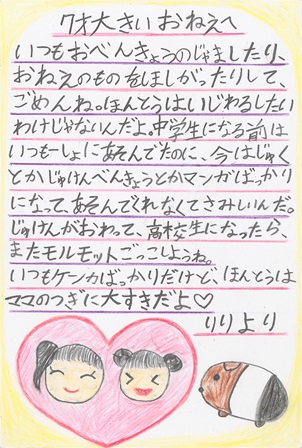 7才大きいおねえへ
いつもおべんきょうのじゃましたり、
おねえのものをほしがったりして、
ごめんね。ほんとうはいじわるしたい
わけじゃないんだよ。中学生になる前は
いつもいっしょにあそんでたのに、今はじゅく
とかじゅけんべんきょうとかマンガばっかり
になって、あそんでくれなくてさみしいんだ。
じゅけんがおわって、高校生になったら、
またモルモットごっこしようね。
いつもケンカばっかりだけど、ほんとうは
ママのつぎに大すきだよ♡
りりより